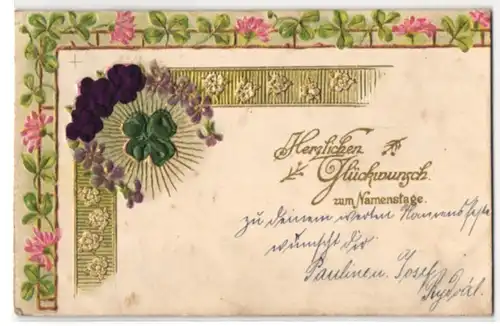 Herzlichen
Glückwunsch
zum Namenstage.
zu deinem werten Namensfeste
wünscht dir
Paulinen. Josef